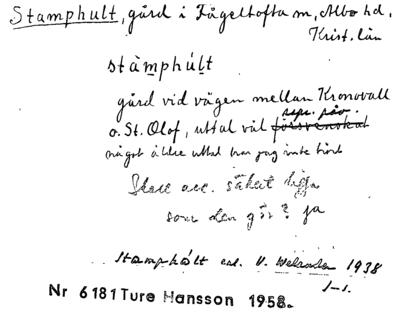 Stamphult, gård i Fågeltofta sn, Albo hd,
Krist. län
stàmphúlt
gård vid vägen mellan Kronovall
o. St. Olof, uttal väl försvenskat
något äldre uttal har jag inte hört
Skall acc. säkert ligga
som den gör? ja
Stamphúlt enl. V. Welander 1938
Nr 6181 Ture Hansson 1958.